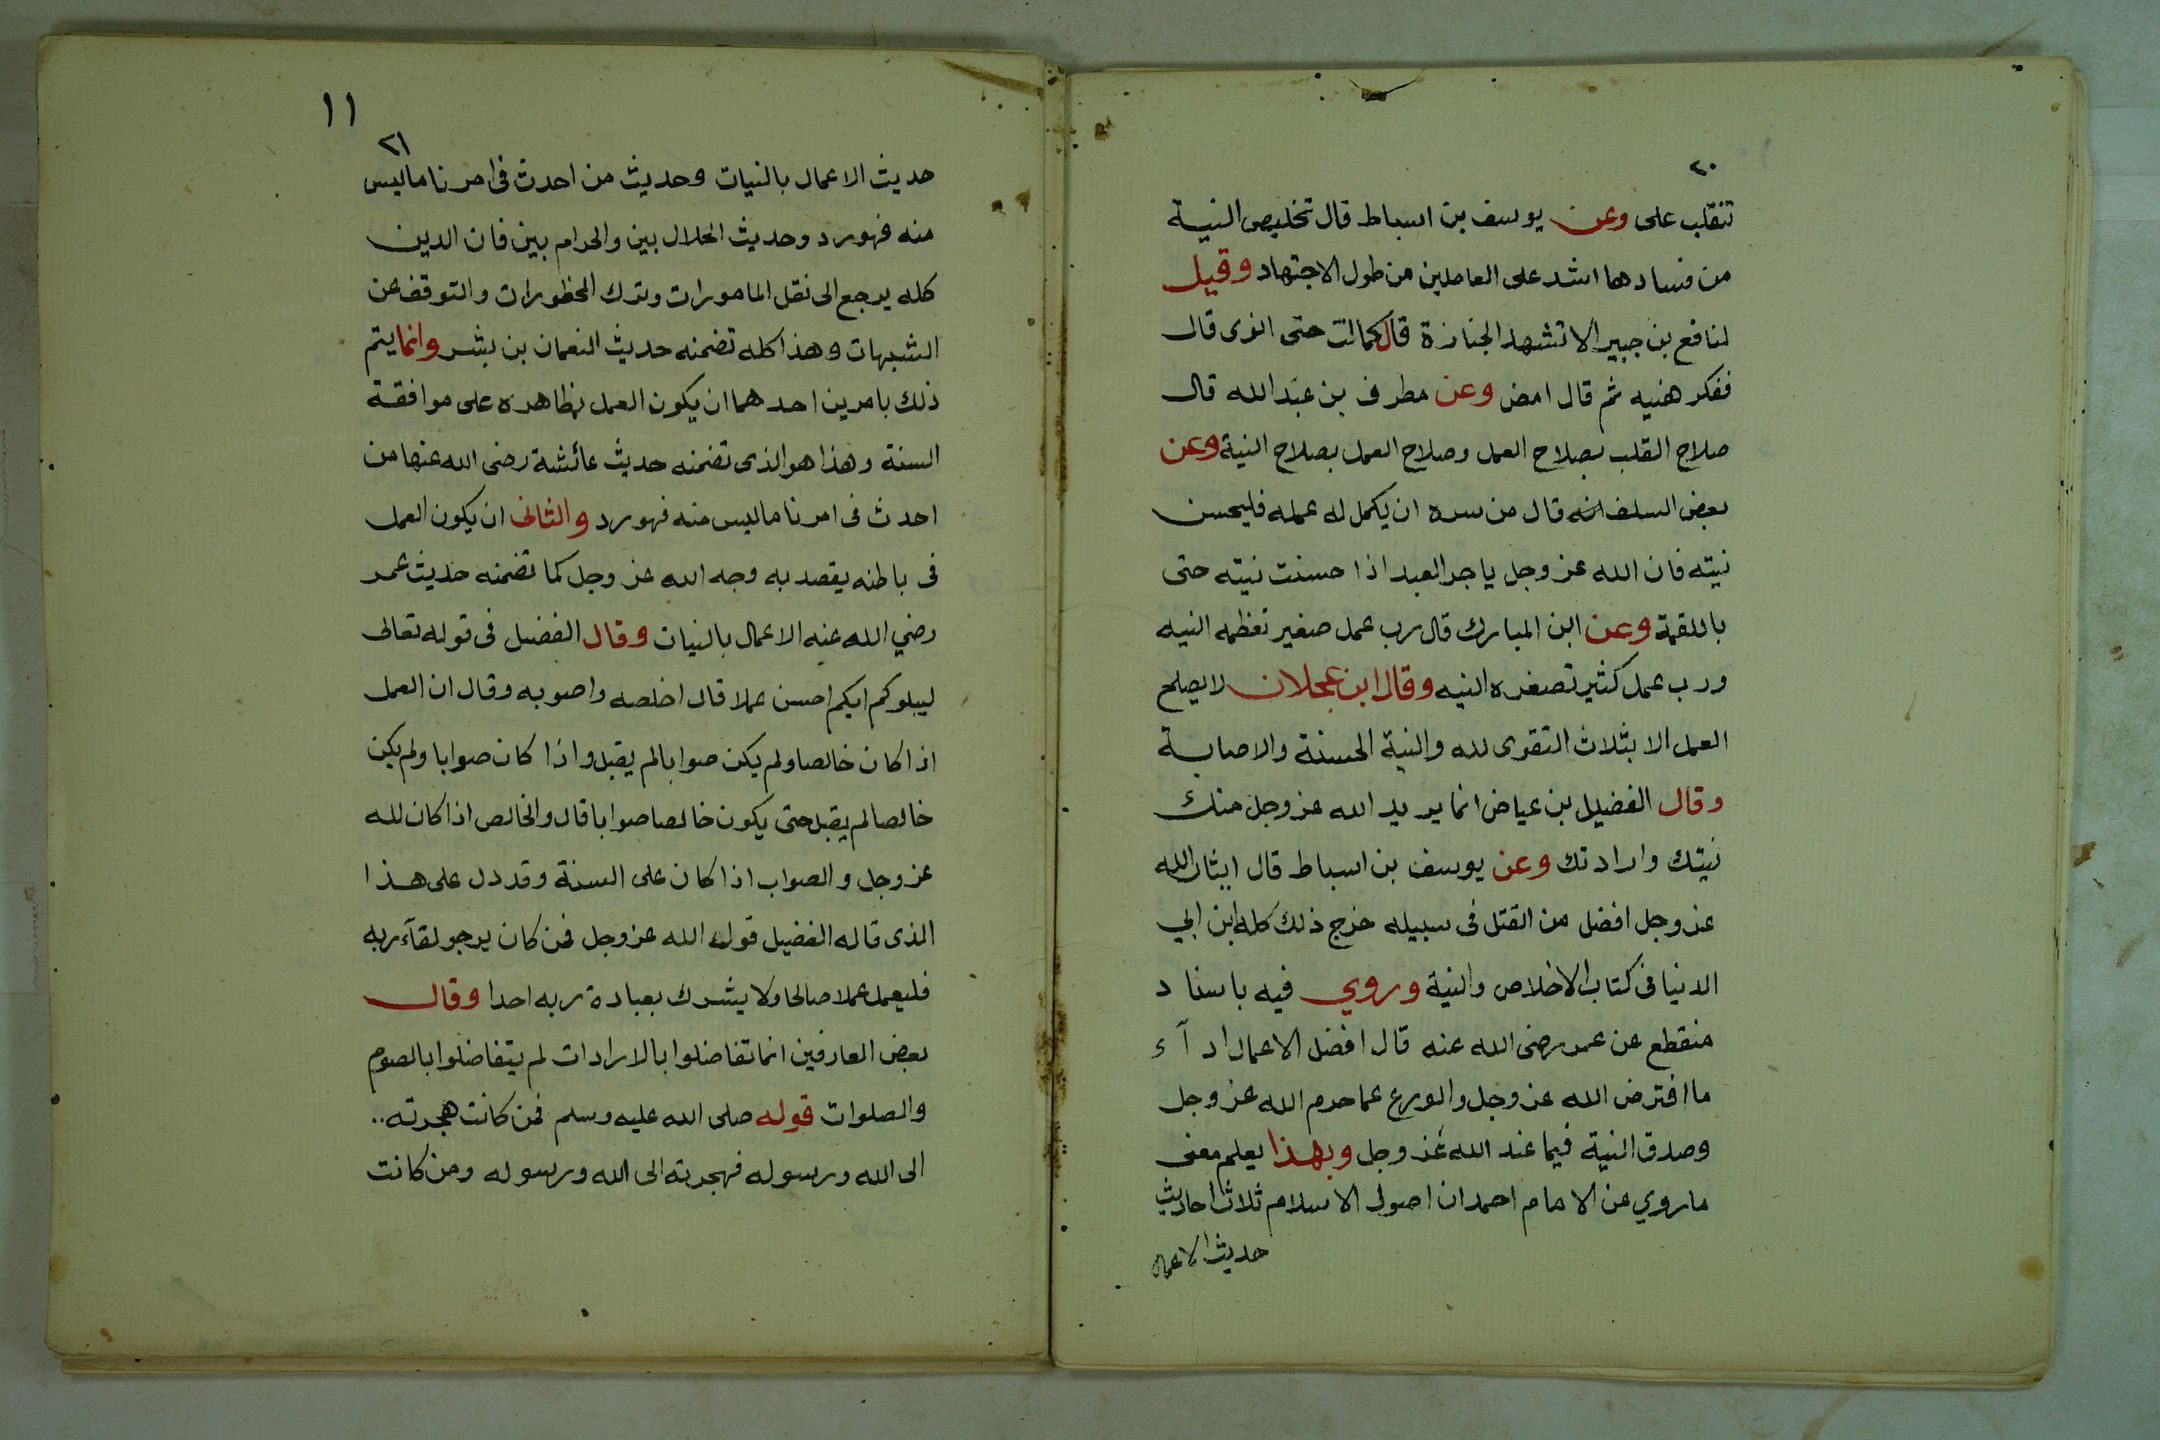 ٢٠
تنقلب على وعن يوسف بن اسباط قال تخليص النية
من فسادها اشد على العاملين من طول الاجتهاد وقيل
لنافع بن جبير الا تشهد الجنازة قال كمانت حتى انوى قال
ففكر هنيه ثم قال امض وعن مطرف بن عبد الله قال
صلاح القلب بصلاح العمل وصلاح العمل بصلاح النية وعن
بعض السلف انه قال من سره ان يكمل له عمله فليحسن
نيته فان الله عز وجل ياجر العبد اذا حسنت نيته حتى
باللقمة وعن ابن المبارك قال رب عمل صغير تعظمه النيه
ورب عمل كثير تصغره النيه وقال ابن عجلان لا يصلح
العمل الا بثلاث التقوى لله والنية الحسنة والاصابة
وقال الفضيل بن عياض انما يريد الله عز وجل منك
نيتك وارادتك وعن يوسف بن اسباط قال ايثار الله
عز وجل افضل من القتل فى سبيله خرج ذلك كله ابن ابي
الدنيا فى كتاب الاخلاص والنية وروي فيه باسناد
منقطع عن عمر رضى الله عنه قال افضل الاعمال ادآء
ما افترض الله عز وجل والورع عما حرم الله عز وجل
وصدق النية فيما عند الله عز وجل وبهذا يعلم معنى
ماروي عن الامام احمد ان اصول الاسلام ثلاث احاديث
حديث الاعمال
١١
٢١
حديث الاعمال بالنيات وحديث من احدث فى امرنا ماليس
منه فهورد وحديث الحلال بين والحرام بين فان الدين
كله يرجع الى نقل المامورات وترك المحظورات والتوقف عن
الشبهات وهذا كله تضمنه حديث النعمان بن بشر وانما يتم
ذلك بامرين احدهما ان يكون العمل بظاهره على موافقة
السنة وهذا هو الذى تضمنه حديث عائشة رضى الله عنها من
احدث فى امرنا ماليس منه فهورد والثانى ان يكون العمل
فى باطنه يقصد به وجه الله عز وجل كما تضمنه حديث عمر
رضي الله عنه الاعمال بالنيات وقال الفضيل فى قوله تعالى
ليبلوكم ايكم احسن عملا قال اخلصه واصوبه وقال ان العمل
اذا كان خالصا ولم يكن صوابا لم يقبل واذا كان صوابا ولم يكن
خالصا لم يقبل حتى يكون خالصا صوابا قال والخالص اذا كان لله
عز وجل والصواب اذا كان على السنة وقد دل على هذا
الذى قاله الفضيل قوله الله عز وجل فمن كان يرجو لقآء ربه
فليعمل عملا صالحا ولا يشرك بعبادة ربه احدا وقال
بعض العارفين انما تفاضلوا بالارادات لم يتفاضلوا بالصوم
والصلوات قوله صلى الله عليه وسلم فمن كانت هجرته..
الى الله ورسوله فهجرته الى الله ورسوله ومن كانت